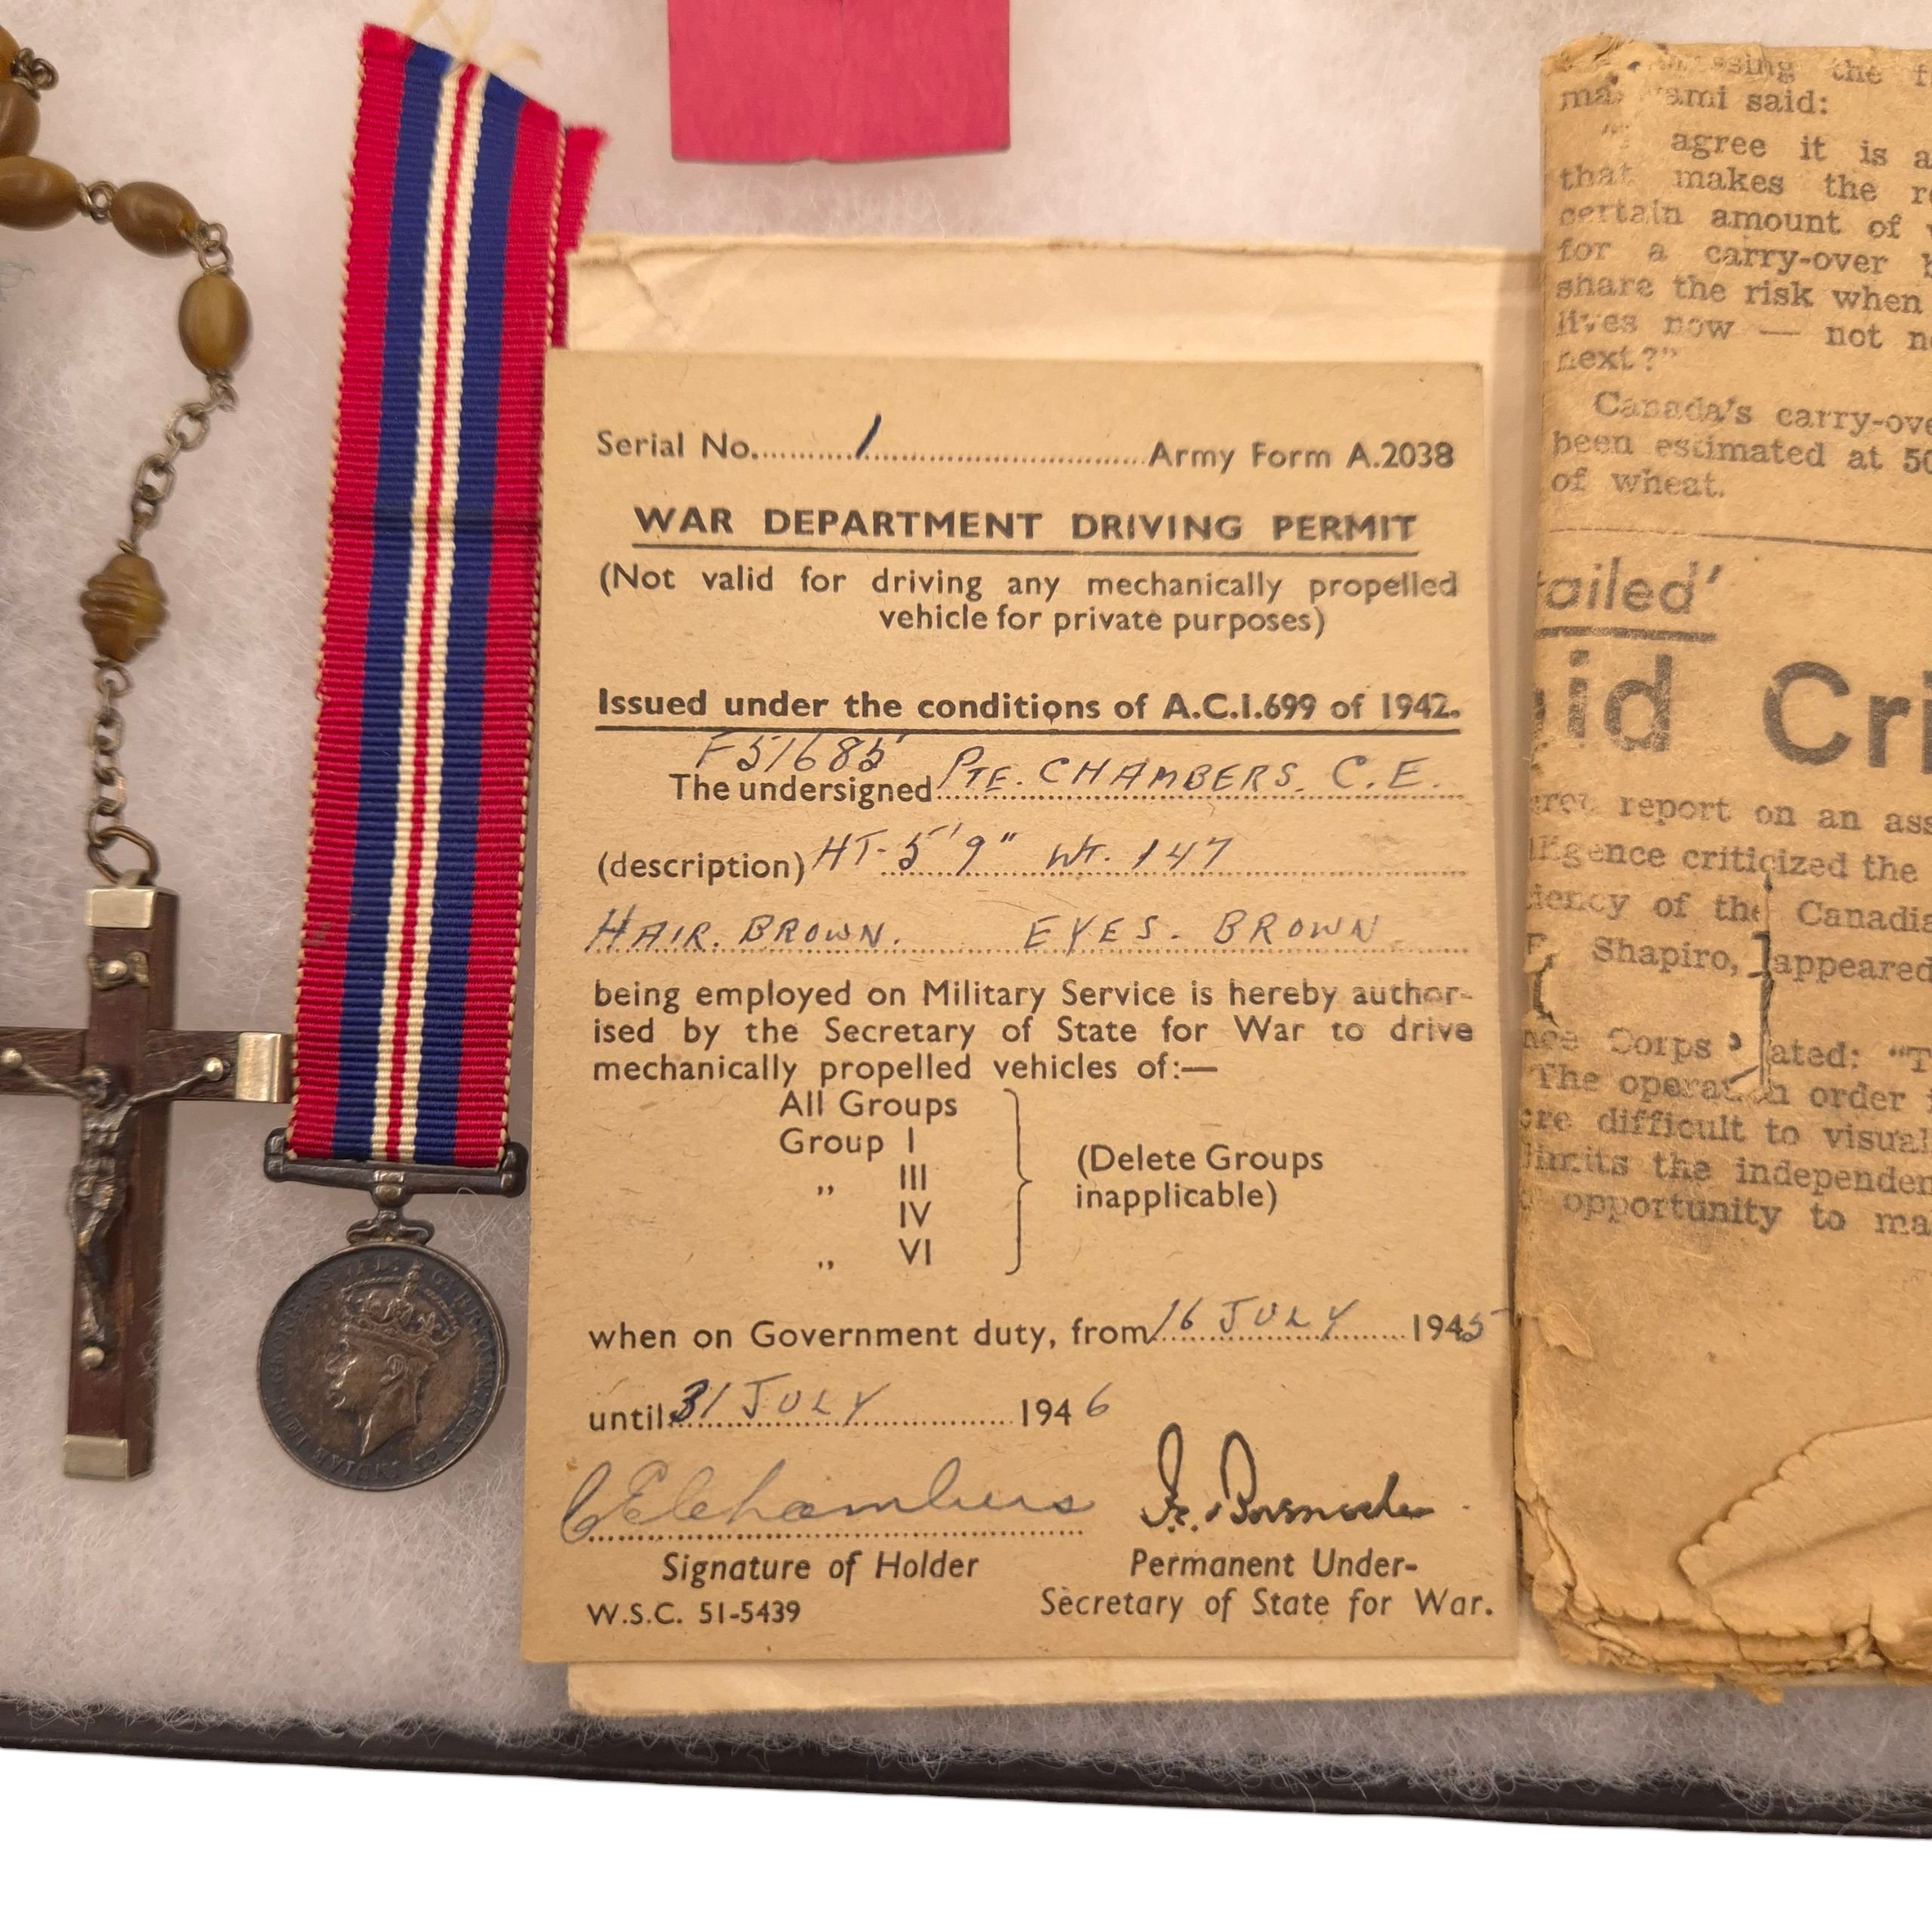 Serial No. 1 Army Form A.2038
WAR DEPARTMENT DRIVING PERMIT
(Not valid for driving any mechanically propelled
vehicle for private purposes)
Issued under the conditions of A.C.I.699 of 1942.
F51685
The undersigned PTE. CHAMBERS. C.E.
(description) HT- 5'9" WT. 147
HAIR. BROWN. EYES. BROWN.
being employed on Military Service is hereby author-
ised by the Secretary of State for War to drive
mechanically propelled vehicles of:—
All Groups
Group I
„ III
IV
„ VI
(Delete Groups
inapplicable)
when on Government duty, from 16 JULY 1945
until 31 JULY 1946
CEChambers
Signature of Holder
Permanent Under-
Secretary of State for War.
W.S.C. 51-5439
the
said:
agree it is
that makes the
certain amount of
for a carry-over
share the risk when
lives now — not
next?"
Canada's
been estimated at 50
of wheat.
ailed'
id Cri
report on an
criticized the
of the
Shapiro, appeared
Corps
The order
difficult to
the
opportunity to